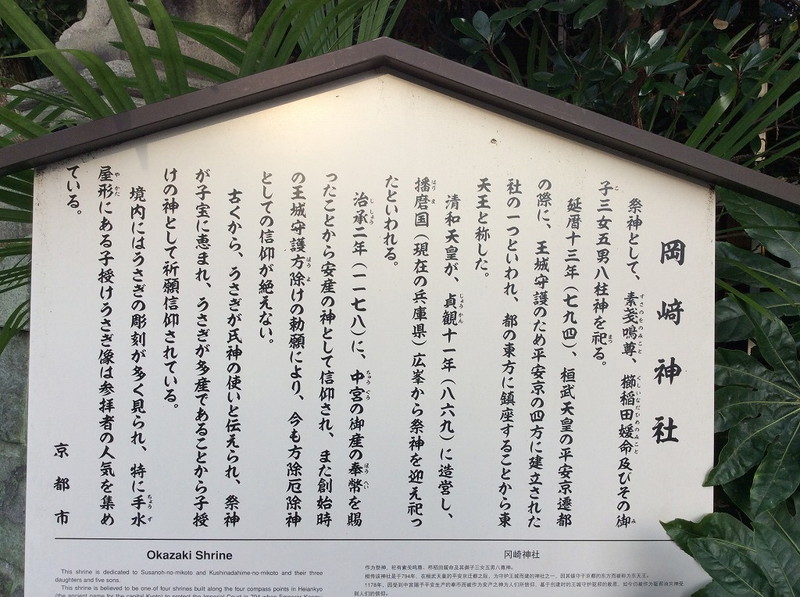 岡﨑神社
祭神として、素戔嗚尊、櫛稲田媛命及びその御
子三女五男八柱神を祀る。
延暦十三年（七九四）、桓武天皇の平安京遷都
の際に、王城守護のため平安京の四方に建立された
社の一つといわれ、都の東方に鎮座することから東
天王と称した。
清和天皇が、貞観十一年（八六九）に造営し、
播磨国（現在の兵庫県）広峯から祭神を迎え祀っ
たといわれる。
治承二年（一一七八）に、中宮の御産の奉幣を賜
ったことから安産の神として信仰され、また創始時
の王城守護方除けの勅願により、今も方除厄除神
としての信仰が絶えない。
古くから、うさぎが氏神の使いと伝えられ、祭神
が子宝に恵まれ、うさぎが多産であることから子授
けの神として祈願信仰されている。
境内にはうさぎの彫刻が多く見られ、特に手水
屋形にある子授けうさぎ像は参拝者の人気を集め
ている。
京都市
Okazaki Shrine
This shrine is dedicated to Susanoh-no-mikoto and Kushinadahime-no-mikoto and their three
daughters and five sons.
This shrine is believed to be one of four shrines built along the four compass points in Heiankyo
冈崎神社